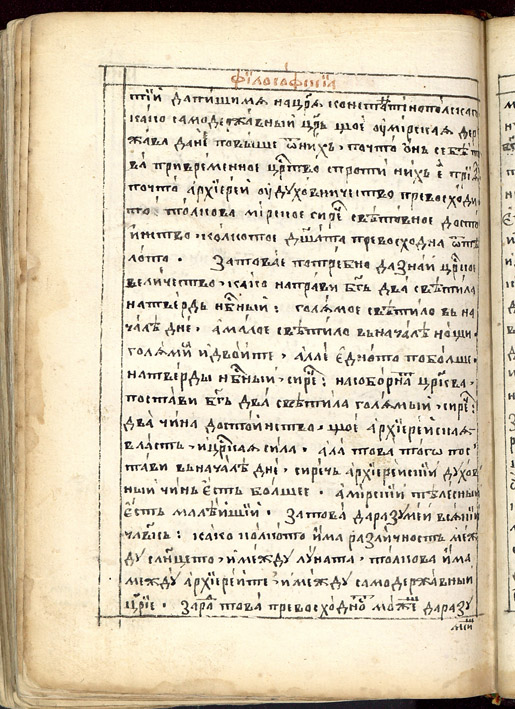 філософскиїа
тїй да пишима на црѧ константїнополскаго
како самодержавный црь що е ѹ мірскаѧ дер
жава дане повыше ѿ нихъ, почто онь себѣ
ва привременное црство спроти нихъ е
почто архїерей ѹ духовничество превосходи
то толкова мірское сирⷱ свѣтовное досто
инство, колкото дшата превосходна ѿ тѣ
лото. За това е потребно да знай црское
величество, како направи бгъ два свѣтила
на твердь нбный: голямое свѣтило вь на
чалѣ дне, а малое свѣтило вь началѣ нощи.
голямй и двойте, алле едното по болше.
на тверды нбный, сирⷱ: на соборна црква,
постави бгъ два свѣтила голямый, сирⷱ:
два чина достойнство, що е архїерейскаѧ
власть, и црскаѧ сила. ала това тогѡ пос
тави вь началѣ дне, сиречь архїерейскїй духов
ный чинь есть болшее. а мірскїй тѣлесный
есть малѣйшїй. За това да разумей всѧкїй
члвкъ: како колкото има различность меж
ду слнцето, и между луната, толкова има
между архїерейте, и между самодержавный
црїе. Зара това превосходно може да разу
мей